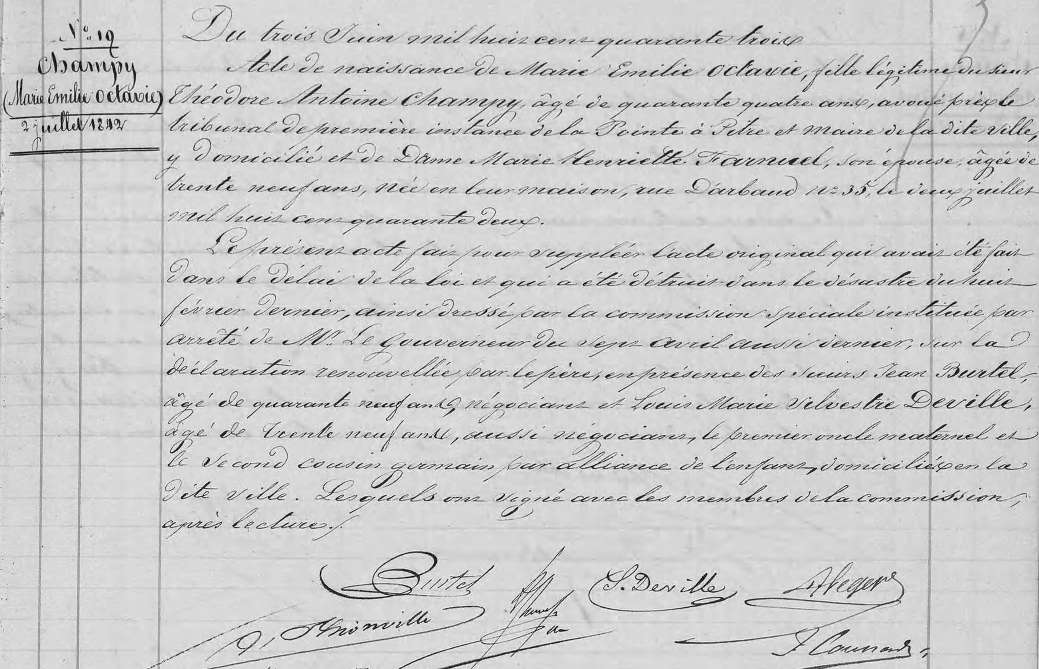 N° 19
Champy
(Marie Emilie Octavie)
2 juillet 1842
Du trois Juin mil huit cent quarante trois
Acte de naissance de Marie Emilie Octavie, fille légitime du sieur
Théodore Antoine Champy, âgé de quarante quatre ans, avoué près le
tribunal de première instance de la Pointe à Pitre et maire de la dite ville,
y domicilié et de Dame Marie Henriette Farnuel, son épouse, âgée de
trente neuf ans, née en leur maison, rue D'arbaud n° 35, le deux juillet
mil huit cent quarante deux.
Le présent acte fait pour suppléer l'acte original qui avait été fait
dans le délai de la loi et qui a été détruit dans le désastre du huit
février dernier, ainsi dressé par la commission spéciale instituée par
arrêté de Mr. Le Gouverneur du sept avril aussi dernier, sur la
déclaration renouvellée par le père, en présence des sieurs Jean Burtel,
âgé de quarante neuf ans, négociant et Louis Marie Silvestre Deville,
âgé de trente neuf ans, aussi négociant, le premier oncle maternel et
le second cousin germain par alliance de l'enfant, domiciliés en la
dite ville. Lesquels ont signé avec les membres de la commission,
après lecture./
Burtel
S. Deville
A Leger
Thionville